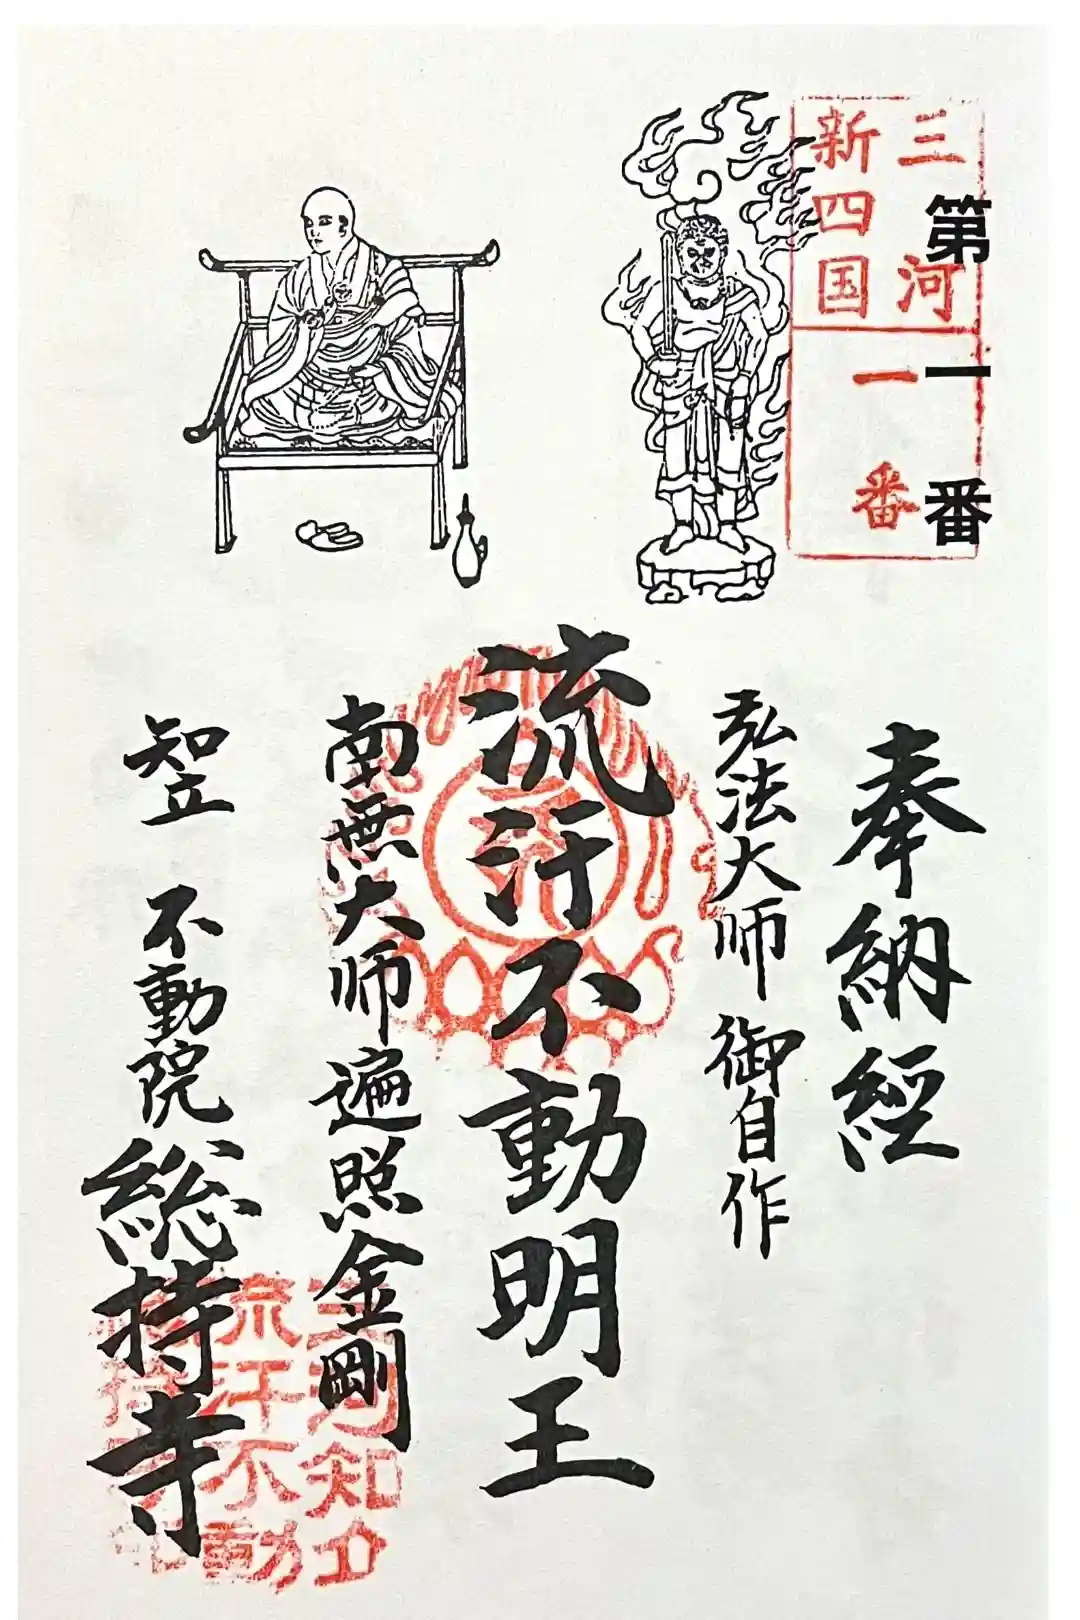 第一番
三河
新四国
一番
奉納経
弘法大師 御自作
流汗不動明王
南無大師遍照金剛
知立 不動院 総持寺
三河知立
流汗不動